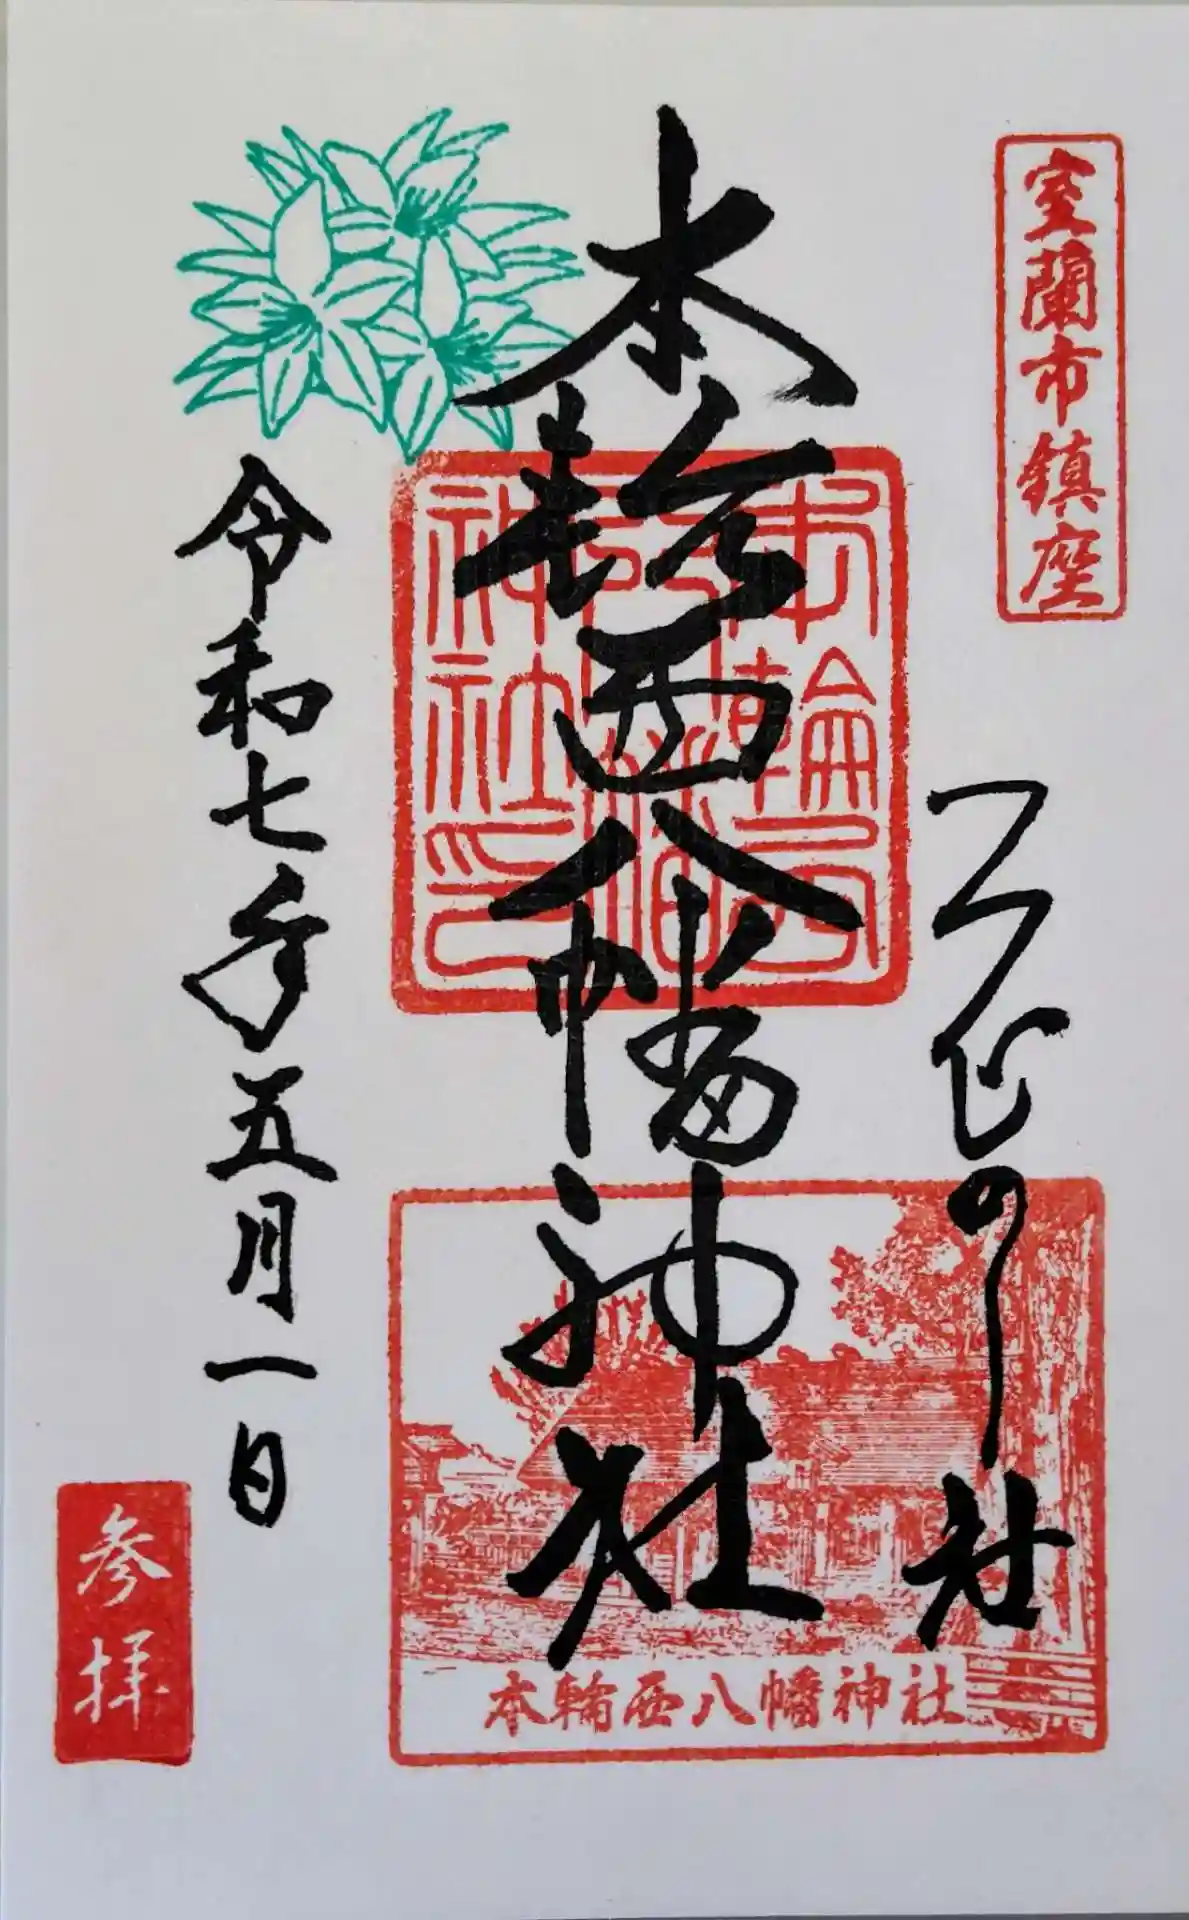 室蘭市鎮座
つつじの社
本輪西八幡神社
本輪西
八幡
神社印
本輪西八幡神社
令和七年五月一日
参拝